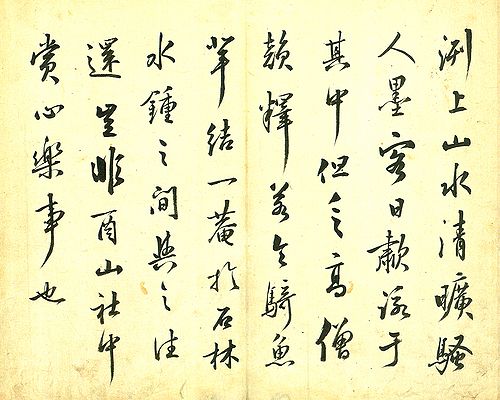 上山水清曠騷
人墨客日歗詠于
其中但乏高僧
韻釋若令騎魚
輩結一菴於石林
水鍾之間與之往
還豈非酉山社中
賞心樂事也